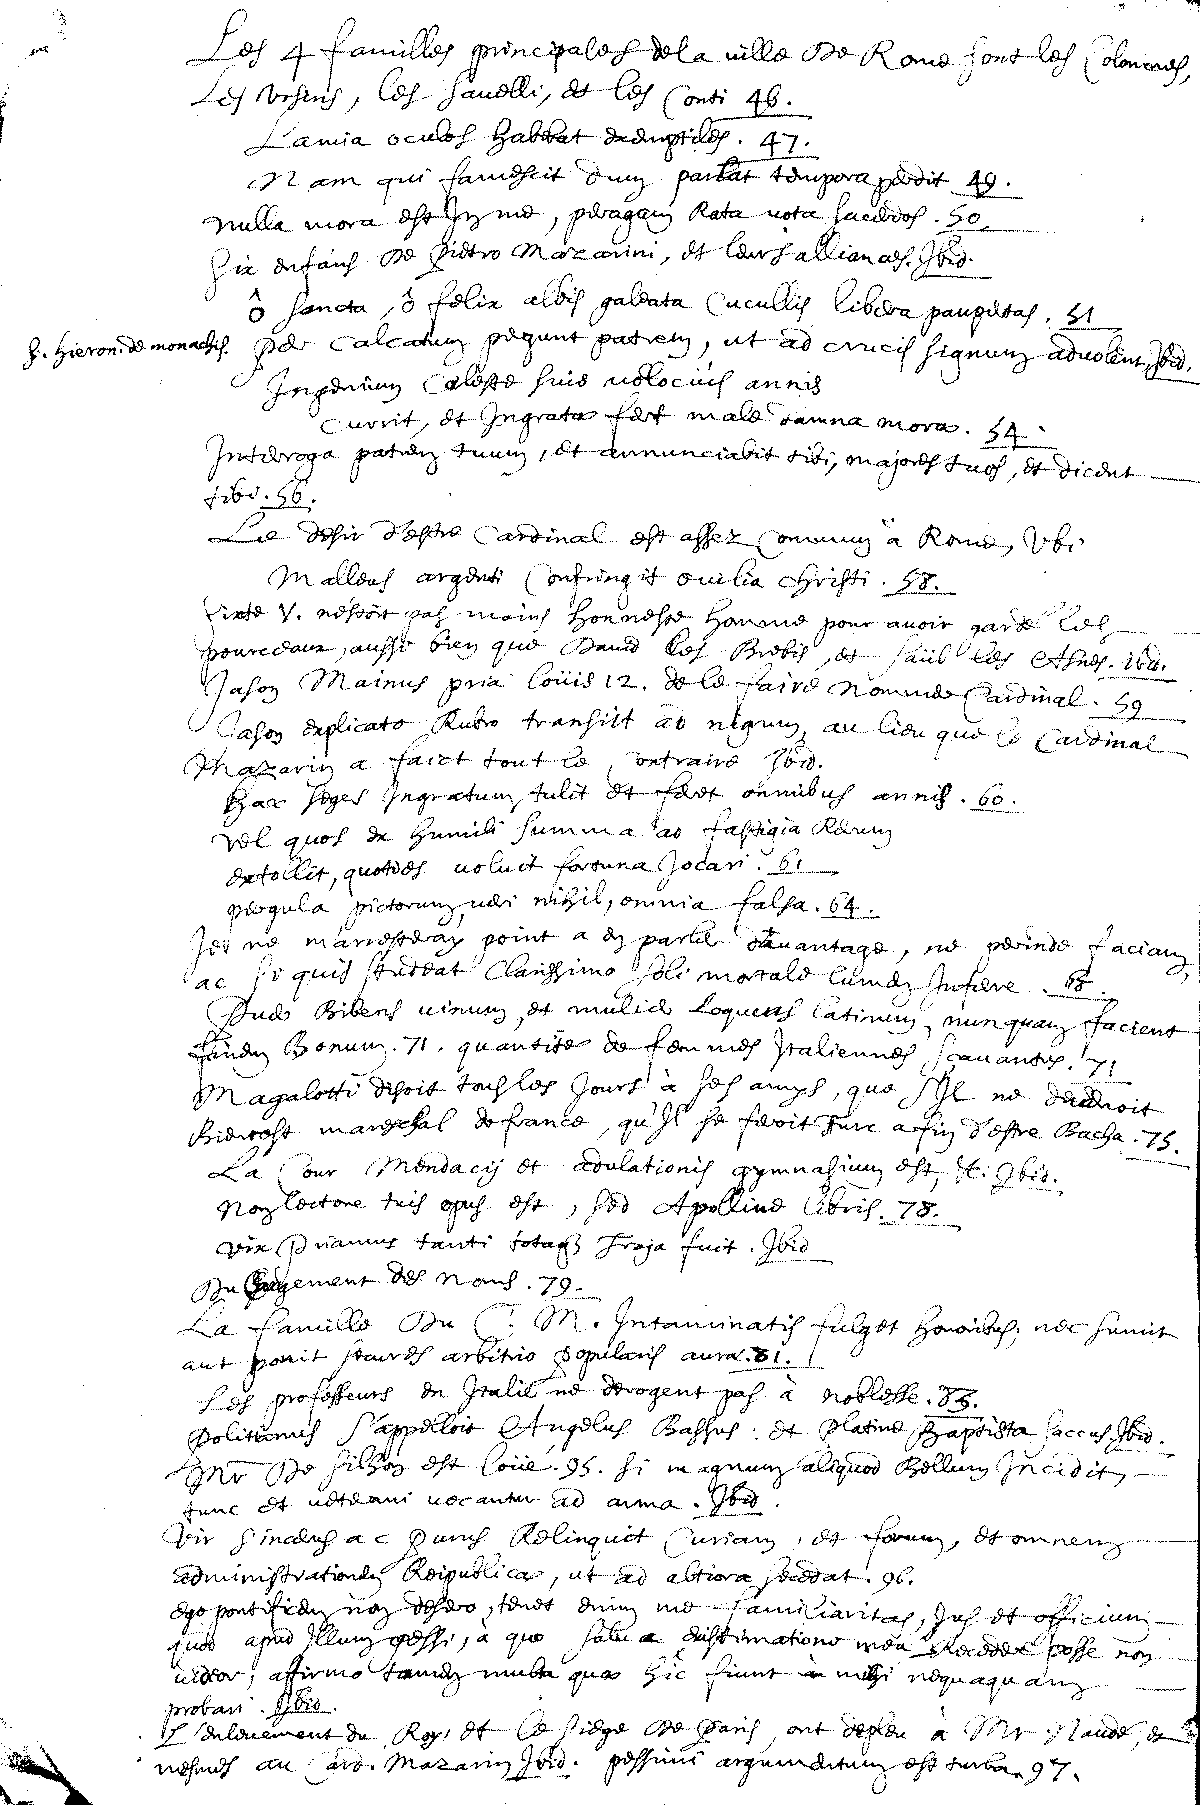 Les 4 familles principales de la ville de Rome sont les Colonnes,
Les Vrsins, les Sauelli, et les Conti 46.
Lamia oculos habebat exemptiles. 47.
Nam qui famescit dum parlat tempora perdit 49.
nulla mora est In me, peragam Rata vota sacerdos. 50.
Six enfans de Pietro Mazarini, et leurs alliances. Ibid.
ô sancta, ô felix albis galeata Cucullis libera paupertas. 51
S. Hieron. de monachis. per Calcatum pergunt patrem, ut ad crucis signum aduolent, Ibid.
Ingenium Celeste suis uelocius annis
Currit, et Ingratae fert male damna morae. 54.
Interroga patrem tuum, et annunciabit tibi, majores tuos, et dicent
tibi. 56.
Le desir d'estre Cardinal est assez Commun à Rome, Vbi
Malleus argenti Confringit ouilia Christi. 58.
Sixte V. n'estoit pas moins honneste homme pour auoir gardé les
pourceaux, aussy bien que Dauid les Brebis, et Saül les Asnes. ibid.
Jason Mainus pria Loüis 12. de le faire nommer Cardinal. 59
Jason explicato Rubro transiit ad nigrum, au lieu que le Cardinal
Mazarin a faict tout le Contraire Ibid.
Haec seges Ingratum tulit et feret omnibus annis. 60.
vel quos ex humili summa ad fastigia Rerum
extollit, quoties uoluit fortuna Jocari. 61
pergula pictorum, ueri nihil, omnia falsa. 64.
Je ne m'arresteray point a en parler dauantage, ne perinde faciam,
ac si quis studeat Clarissimo soli mortale lumen Inferre. 68.
Puer Bibens uinum, et mulier loquens latinum, nunquam facient
finem Bonum. 71. quantité de femmes Italiennes sçauantes. 71
Magalotti disoit tous les Jours à ses amys, que s'Il ne deuenoit
Bientost mareschal de france, qu'Il se feroit Turc afin d'estre Bacha. 75.
La Cour Mendacij et adulationis gymnasium est, &c. Ibid.
Non lectore tuis opus est, sed Apolline libris. 78.
vix Priamus tanti totaque Troja fuit. Ibid
Du Changement des noms. 79.
La famille Du C. M. Intaminatis fulget honoribus, nec sumit
aut ponit secures arbitrio popularis aurae. 81.
Les professeurs en Italie ne derogent pas à noblesse. 83.
Politianus s'appelloit Angelus Bassus. et Platine Baptista Saccus. Ibid.
Mr. De Silhon est loüé. 95. Si magnum aliquod Bellum Incidit,
tunc et ueterani uocantur ad arma. Ibid.
Vir sincerus ac Purus Relinquit Curiam, et forum, et omnem
administrationem Reipublicae, ut ad altiora secedat. 96.
ego pontificem non desero, tenet enim me familiaritas, Jus et officium
quod apud Illum gessi, à quo salua existimatione mea Recedere posse non
uideor; affirmo tamen multa quae hic fiunt à mihi nequaquam
probari. Ibid.
L'enleuement du Roy, et le siege de Paris, ont depleu à Mr. Naudé, et
nesmes au Card. Mazarin Ibid. pessimi argumentum est turba. 97.